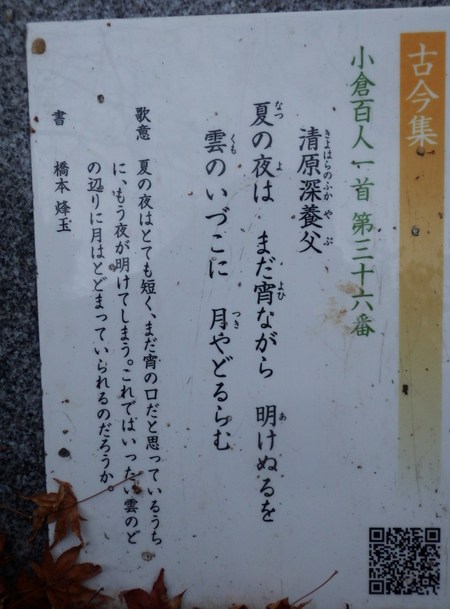 古今集
小倉百人一首 第三十六番
清原深養父
夏の夜は まだ宵ながら 明けぬるを
雲のいづこに 月やどるらむ
歌意 夏の夜はとても短く、まだ宵の口だと思っているうち
に、もう夜が明けてしまう。これではいったい雲のど
の辺りに月はとどまっていられるのだろうか。
書 橋本 烽玉